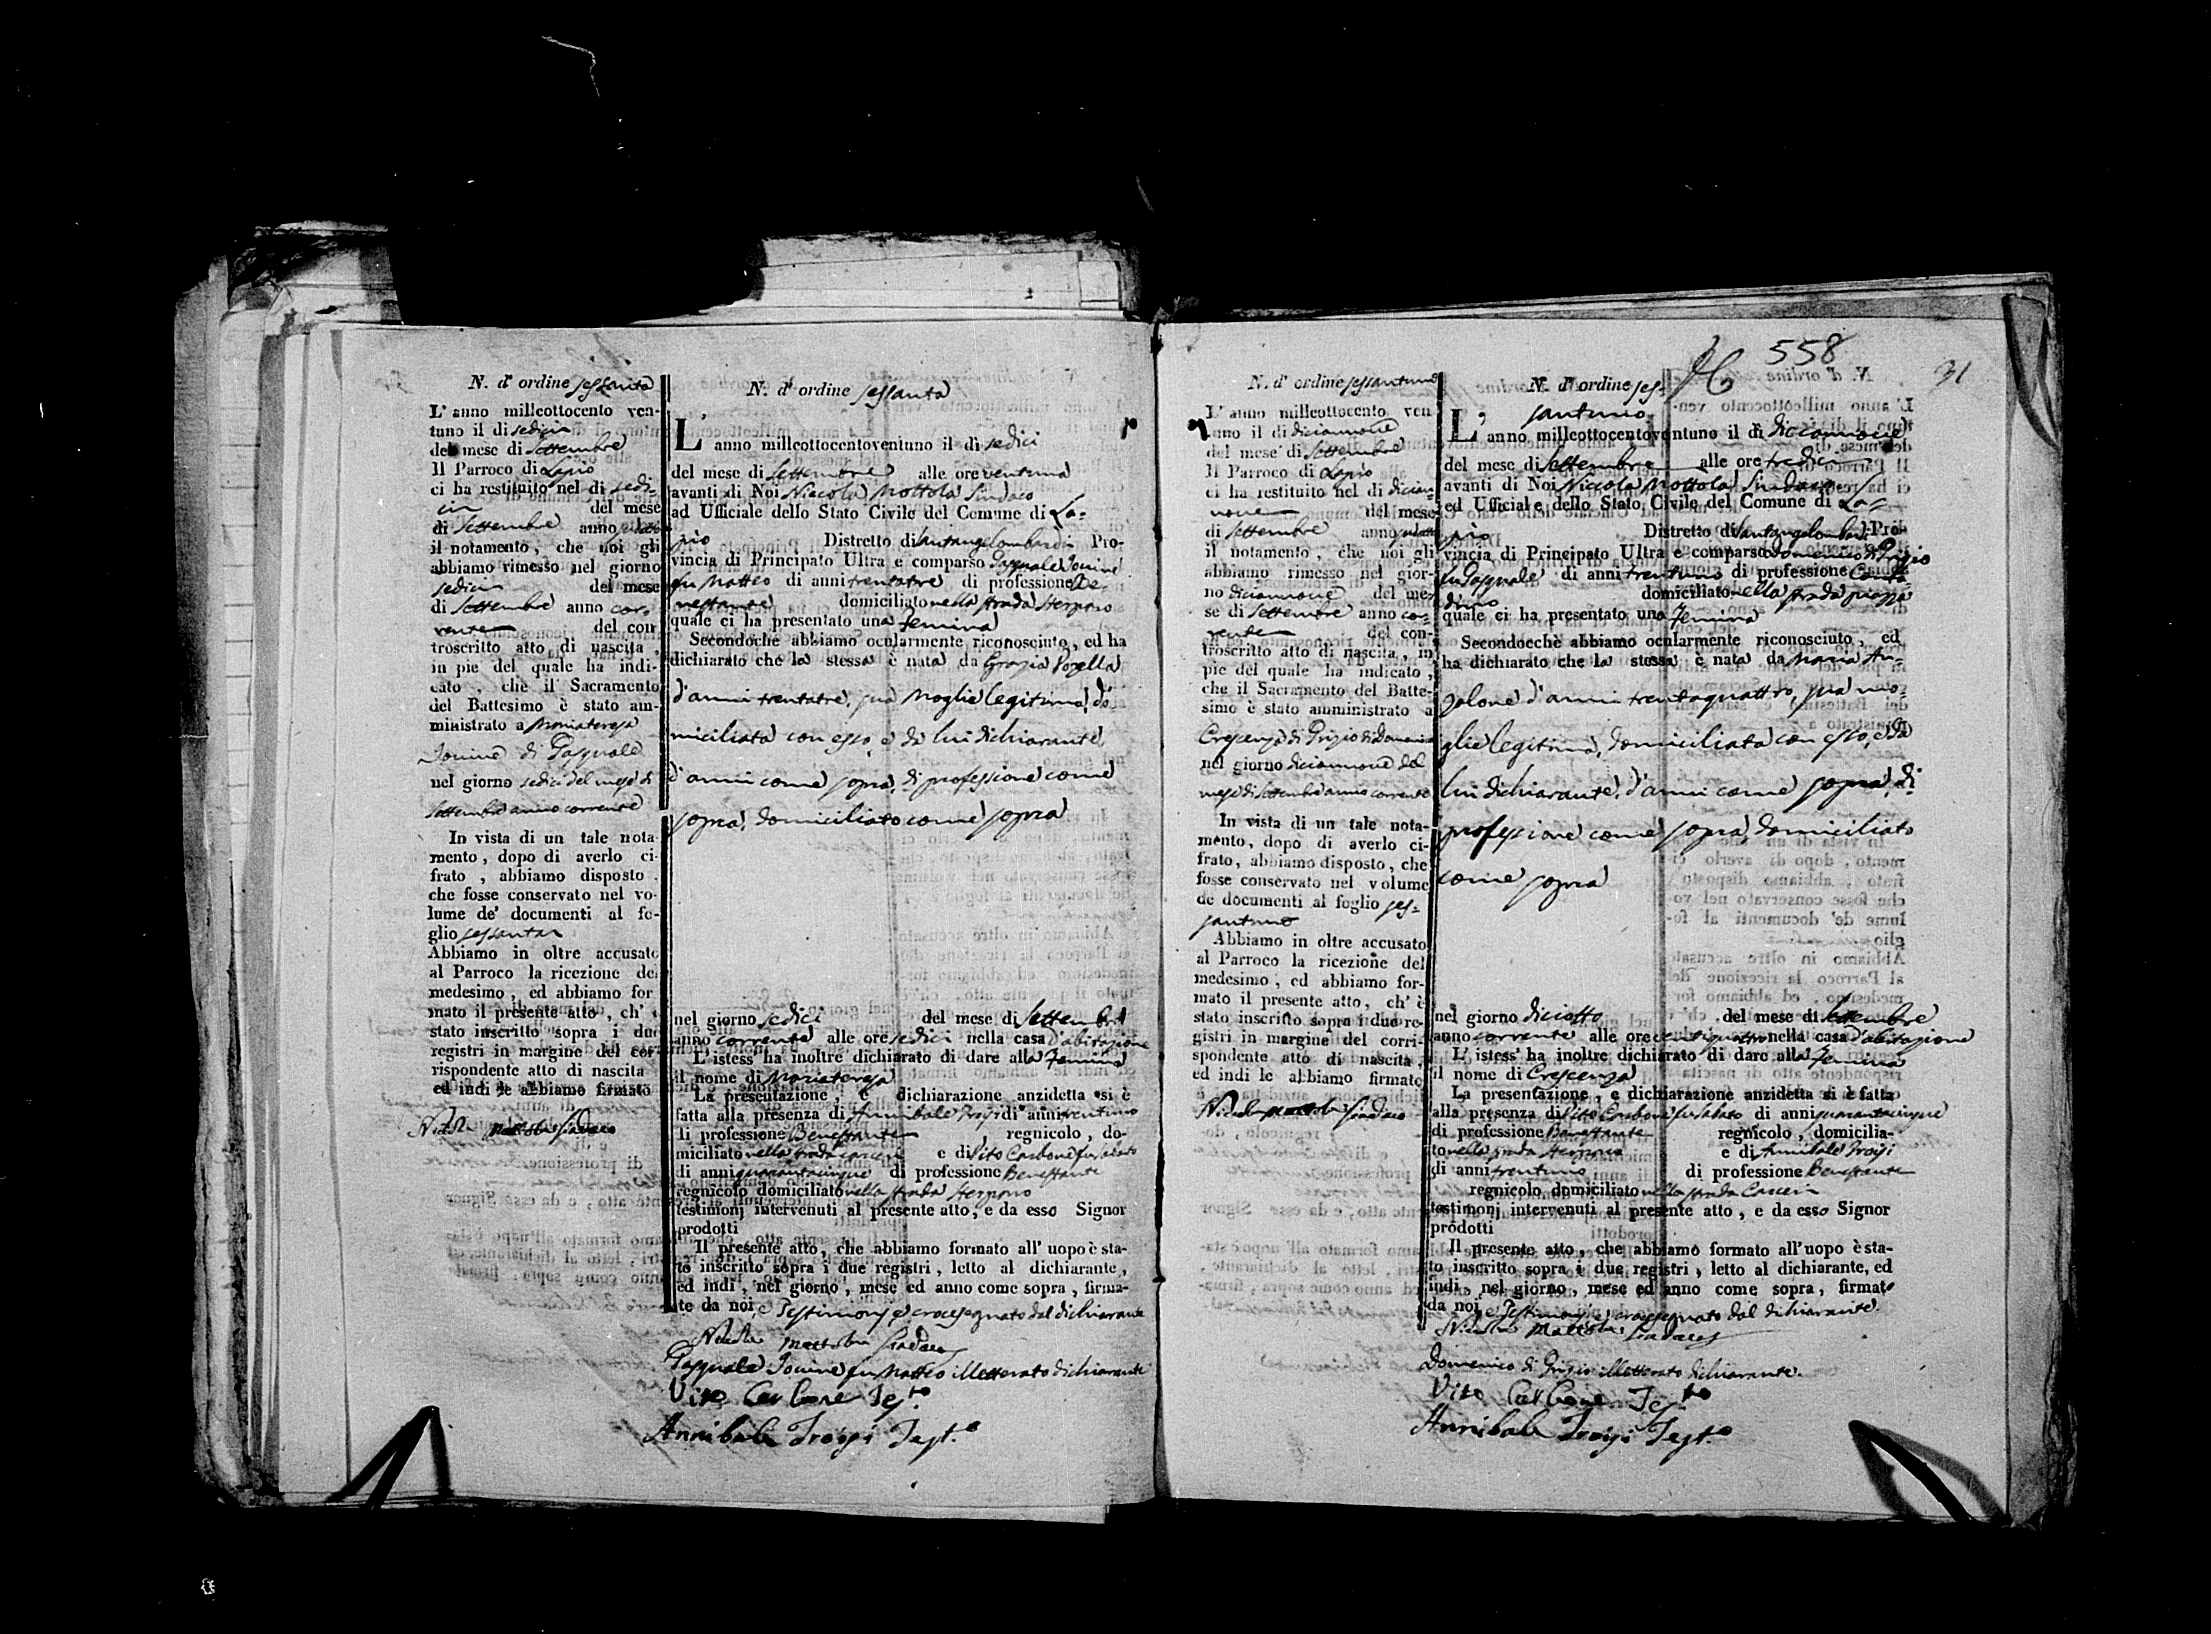 N. d' ordine sessanta
L' anno milleottocento ven-
tuno il di sedici
del mese di Settembre
Il Parroco di Lapio
ci ha restituito nel di sedi-
ci del mese
di Settembre anno
il notamento, che noi gli
abbiamo rimesso nel giorno
sedici del mese
di Settembre anno cor-
rente del con
troscritto atto di nascita,
in pie del quale ha indi-
cato, che il Sacramento
del Battesimo è stato am-
ministrato a Mariateresa
Jonine di Pasquale
nel giorno sedici del mese di
Settembre anno corrente
In vista di un tale nota-
mento, dopo di averlo ci-
frato, abbiamo disposto
che fosse conservato nel vo-
lume de' documenti al fo-
glio sessanta
Abbiamo in oltre accusato
al Parroco la ricezione del
medesimo, ed abbiamo for
mato il presente atto, ch' è
stato inscritto sopra i due
registri in margine del cor
rispondente atto di nascita
ed indi le abbiamo firmato
Nicola Mottola Sindaco
N. d' ordine sessanta
L' anno milleottocentoventuno il di sedici
del mese di Settembre alle ore ventuna
avanti di Noi Niccola Mottola Sindaco
ad Ufficiale dello Stato Civile del Comune di La-
pio Distretto di Santangelombardi Pro-
vincia di Principato Ultra e comparso Pasquale Jonine
fu Matteo di anni trentatre di professione Be-
nestante domiciliato nella strada Sterparo
quale ci ha presentato una femina
Secondochè abbiamo ocularmente riconosciuto, ed ha
dichiarato che la stessa è nata da Grazia
d'anni trentatre, sua Moglie legitima, do-
miciliata con esso, e da lui dichiarante,
d'anni come sopra, di professione come
sopra, domiciliato come sopra
nel giorno sedici del mese di Settembre
anno corrente alle ore sedici nella casa d'abitazione
L' istess' ha inoltre dichiarato di dare alla Femina
il nome di Mariateresa
La presentazione, e dichiarazione anzidetta si è
fatta alla presenza di Annibale Troisi di anni trentuno
di professione Benestante regnicolo, do-
miciliato nella strada carceri e di Vito Carbone fu Sabato
di anni quarantacinque di professione Benestante
regnicolo domiciliato nella strada Sterparo
testimonj intervenuti al presente atto, e da esso Signor
prodotti
Il presente atto, che abbiamo formato all' uopo è sta-
to inscritto sopra i due registri, letto al dichiarante,
ed indi, nel giorno, mese ed anno come sopra, firma-
te da noi, e Testimonj, e crocesegnato dal dichiarante
Nicola Mottola Sindaco
Pasquale Jonine fu Matteo illetterato dichiarante
Vito Carbone Tes.to
Annibale Troisi Test.o
558
31
N. d' ordine sessantuno
L' anno milleottocento ven
tuno il di diciannove
del mese di Settembre
Il Parroco di Lapio
ci ha restituito nel di dician-
nove del mese
di Settembre anno
il notamento, che noi gli
abbiamo rimesso nel gior-
no diciannove del me-
se di Settembre anno cor-
rente del con-
troscritto atto di nascita, in
pie del quale ha indicato,
che il Sacramento del Batte-
simo è stato amministrato a
Crescenza di Prizio di Domenico
nel giorno diciannove del
mese di Settembre anno corrente
In vista di un tale nota-
mento, dopo di averlo ci-
frato, abbiamo disposto, che
fosse conservato nel volume
de documenti al foglio ses-
santuno
Abbiamo in oltre accusato
al Parroco la ricezione del
medesimo, ed abbiamo for-
mato il presente atto, ch' è
stato inscritto sopra i due re-
gistri in margine del corri-
spondente atto di nascita,
ed indi le abbiamo firmato
Nicola Mottola Sindaco
N. d' ordine ses-
santuno
L' anno milleottocentoventuno il di diciannove
del mese di Settembre alle ore tredici
avanti di Noi Niccola Mottola Sindaco
ed Ufficiale dello Stato Civile del Comune di La-
pio Distretto di Santangelombardi Pro-
vincia di Principato Ultra e comparso Domenico di Prizio
fu Pasquale di anni trentuno di professione Conta
dino domiciliato nella strada piazza
quale ci ha presentato una Femina
Secondocchè abbiamo ocularmente riconosciuto, ed
ha dichiarato che la stessa è nata da Maria An-
zolone d'anni trentaquattro, sua mo-
glie legitima, domiciliata con esso, e da
lui dichiarante, d'anni come sopra, di
professione come sopra, domiciliato
come sopra
nel giorno diciotto del mese di Settembre
anno corrente alle ore ventiquattro nella casa d'abitazione
L' istess' ha inoltre dichiarato di dare alla Femina
il nome di Crescenza
La presentazione, e dichiarazione anzidetta si è fatta
alla presenza di Vito Carbone fu Sabato di anni quarantacinque
di professione Benestante regnicolo, domicilia-
to nella strada Sterparo e di Annibale Troisi
di anni trentuno di professione Benestante
regnicolo domiciliato nella strada Carceri
testimonj intervenuti al presente atto, e da esso Signor
prodotti
Il presente atto, che abbiamo formato all'uopo è sta-
to inscritto sopra i due registri, letto al dichiarante, ed
indi, nel giorno, mese ed anno come sopra, firmato
da noi, e Testimonj, e crocesegnato dal dichiarante.
Nicola Mottola Sindaco
Domenico di Prizio illetterato dichiarante.
Vito Carbone Tes.to
Annibale Troisi Test.o